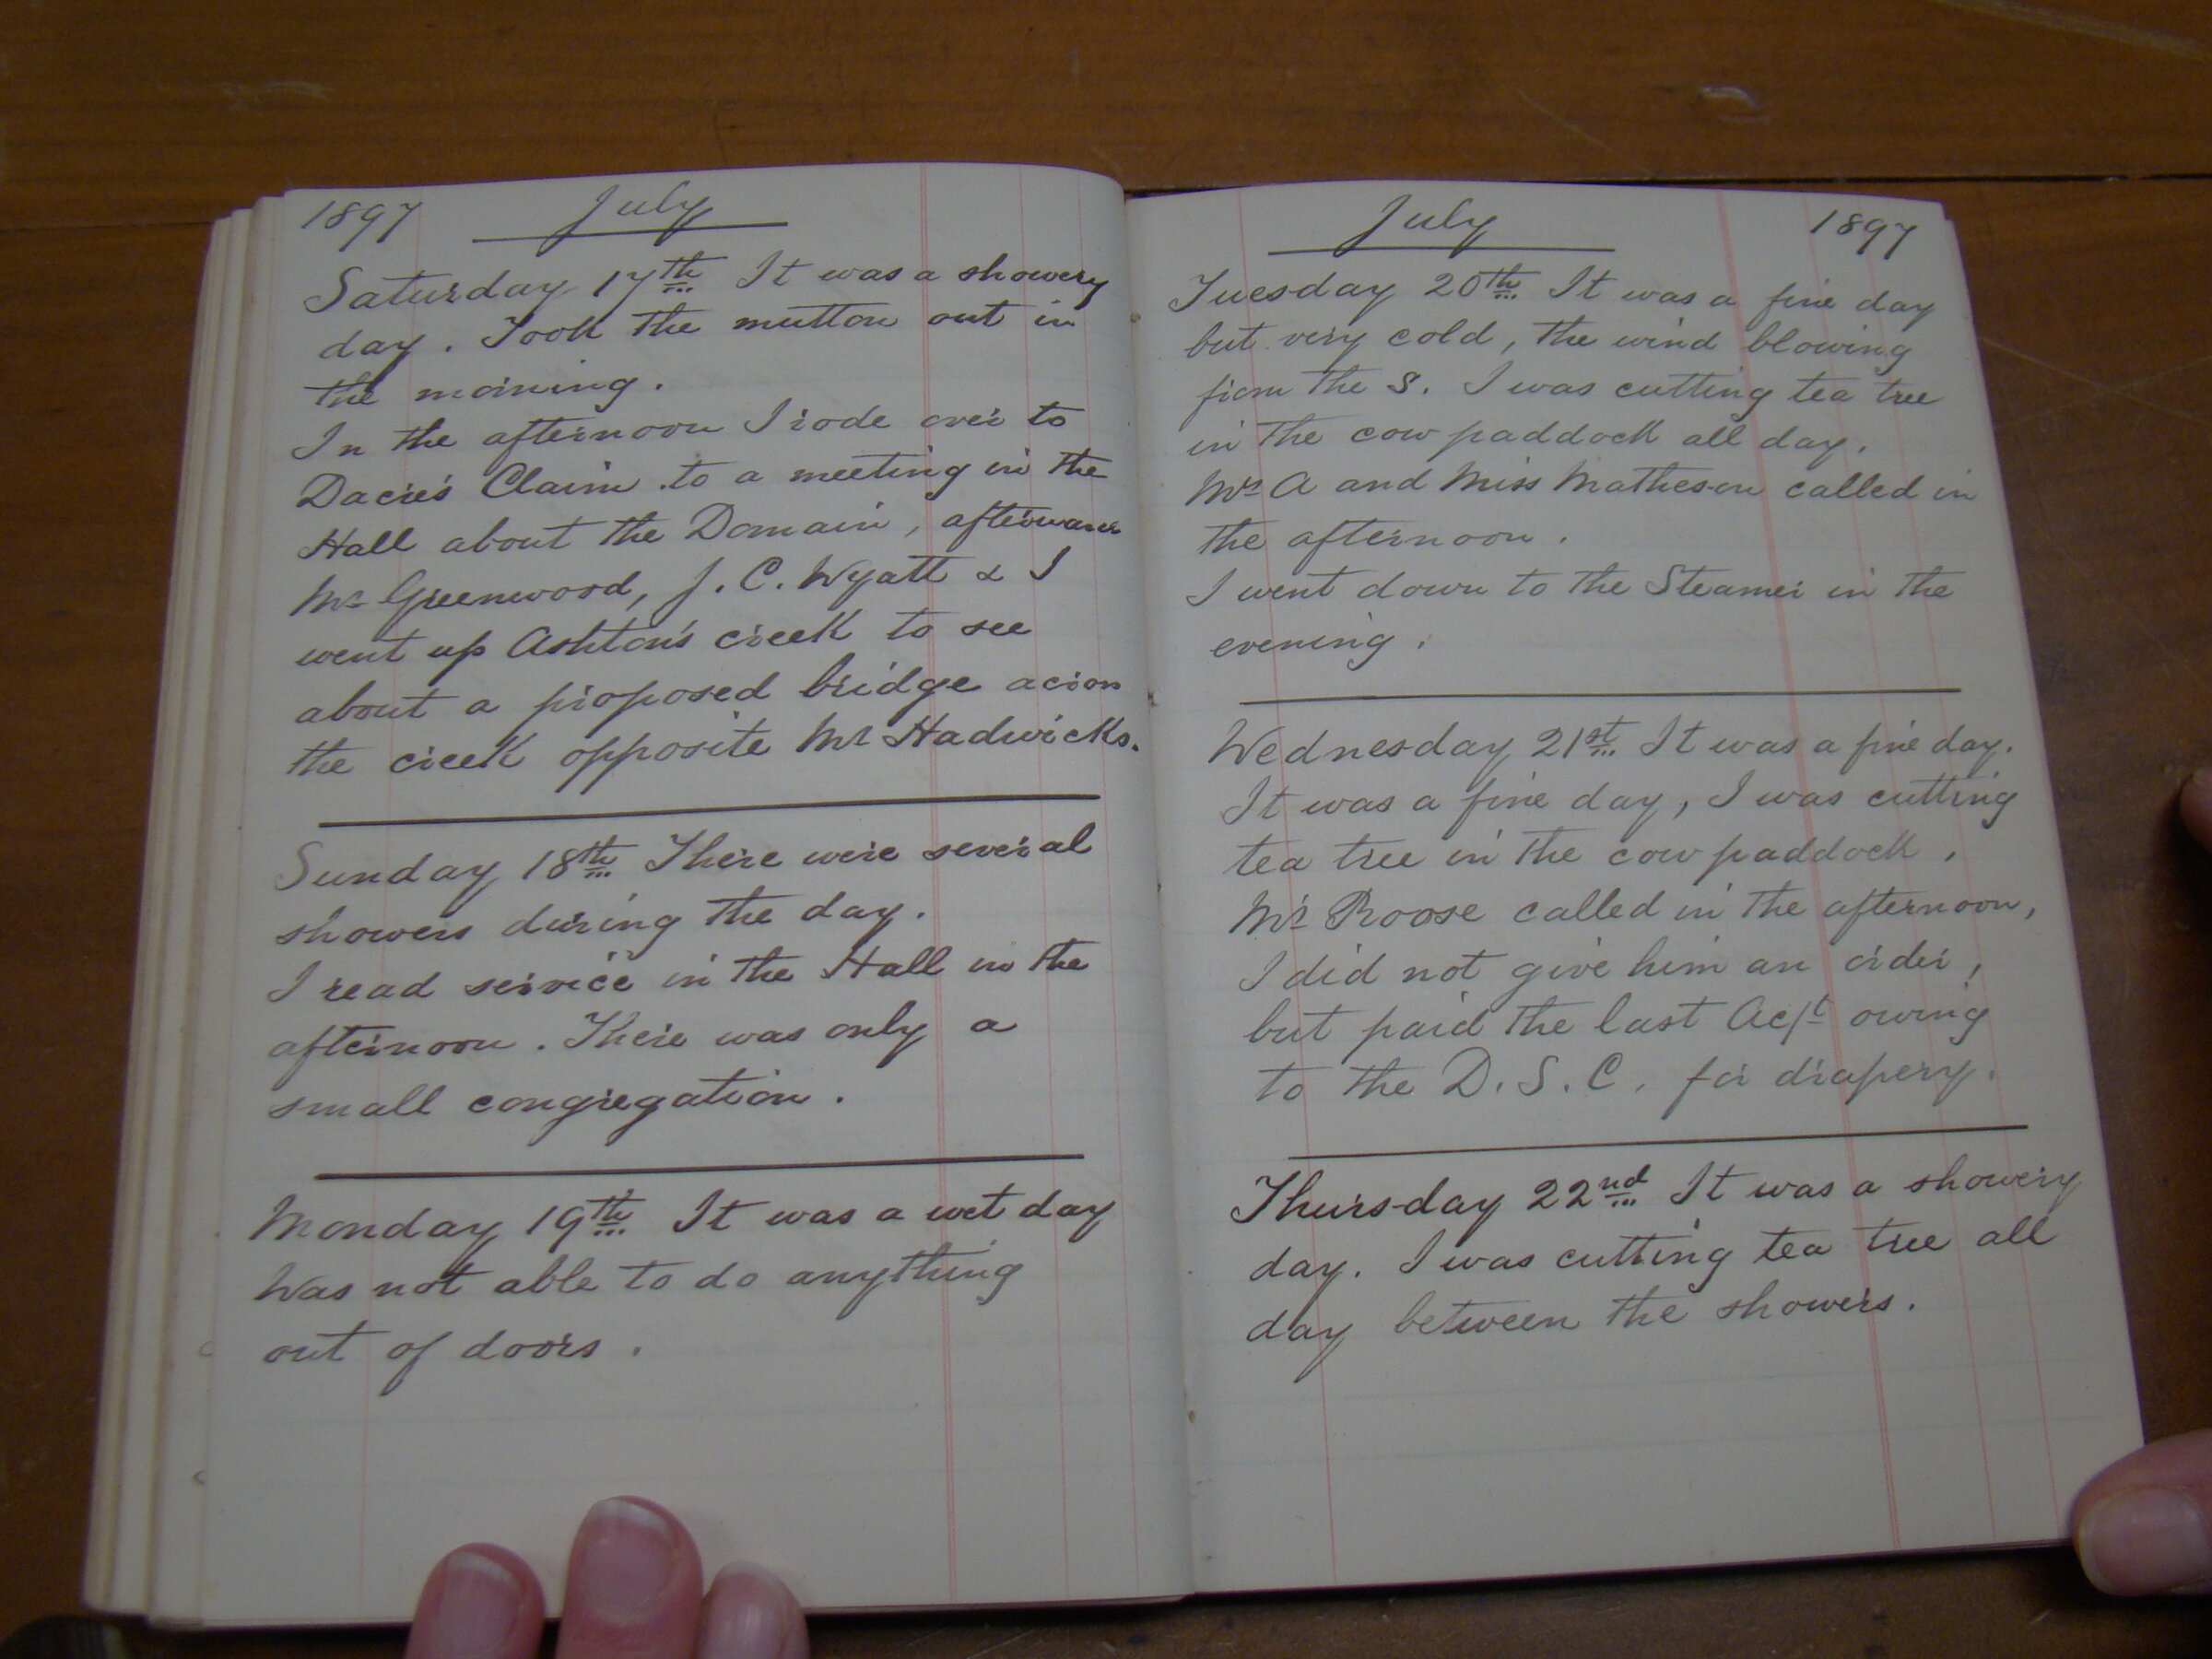 1897 July
Saturday 17th It was a showery
day. Took the mutton out in
the morning.
In the afternoon I rode over to
Dacre's Claim to a meeting in the
Hall about the Domain, afterwards
Mr Greenwood, J. C. Wyatt & I
went up Ashton's creek to see
about a proposed bridge across
the creek opposite Mr Hadwicks.
Sunday 18th There were several
showers during the day.
I read service in the Hall in the
afternoon. There was only a
small congregation.
Monday 19th It was a wet day
Was not able to do anything
out of doors.
July 1897
Tuesday 20th It was a fine day
but very cold, the wind blowing
from the S. I was cutting tea tree
in the cow paddock all day.
Mrs A and Miss Matheson called in
the afternoon.
I went down to the Steamer in the
evening.
Wednesday 21st It was a fine day.
It was a fine day, I was cutting
tea tree in the cow paddock.
Mr Roose called in the afternoon,
I did not give him an order,
but paid the last Ac/t owing
to the D. S. C. for drapery.
Thursday 22nd It was a showery
day. I was cutting tea tree all
day between the showers.